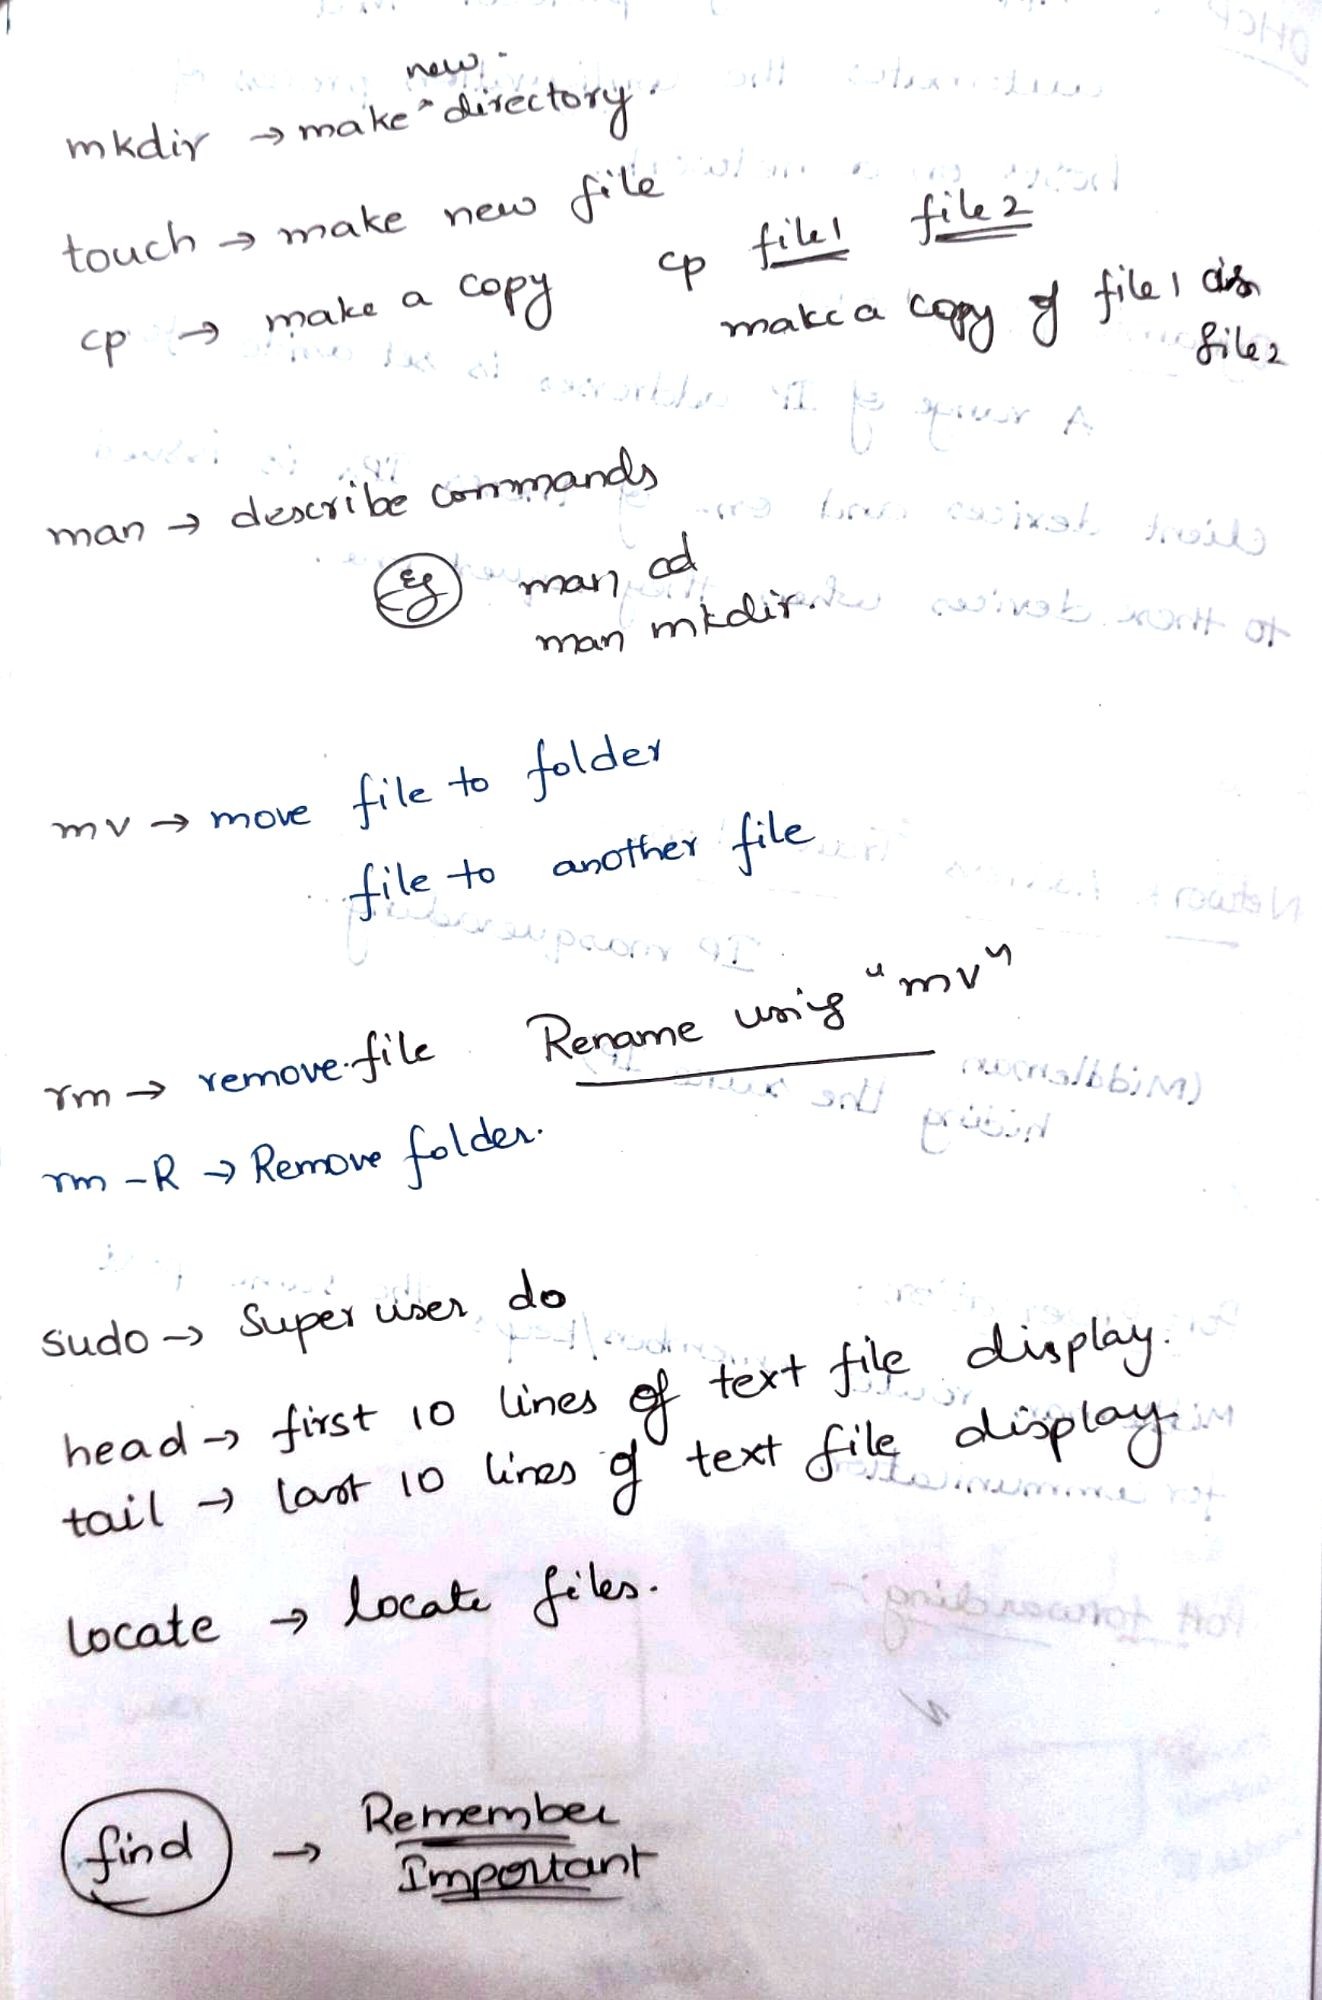 mkdir → make ^new directory.
touch → make new file
cp → make a copy cp file1 file2
make a copy of file1 as
file2
man → describe commands
Eg man cd
man mkdir.
mv → move file to folder
file to another file
rm → remove file Rename using "mv"
rm -R → Remove folder.
sudo → Super user do
head → first 10 lines of text file display.
tail → last 10 lines of text file display
locate → locate files.
find → Remember
Important